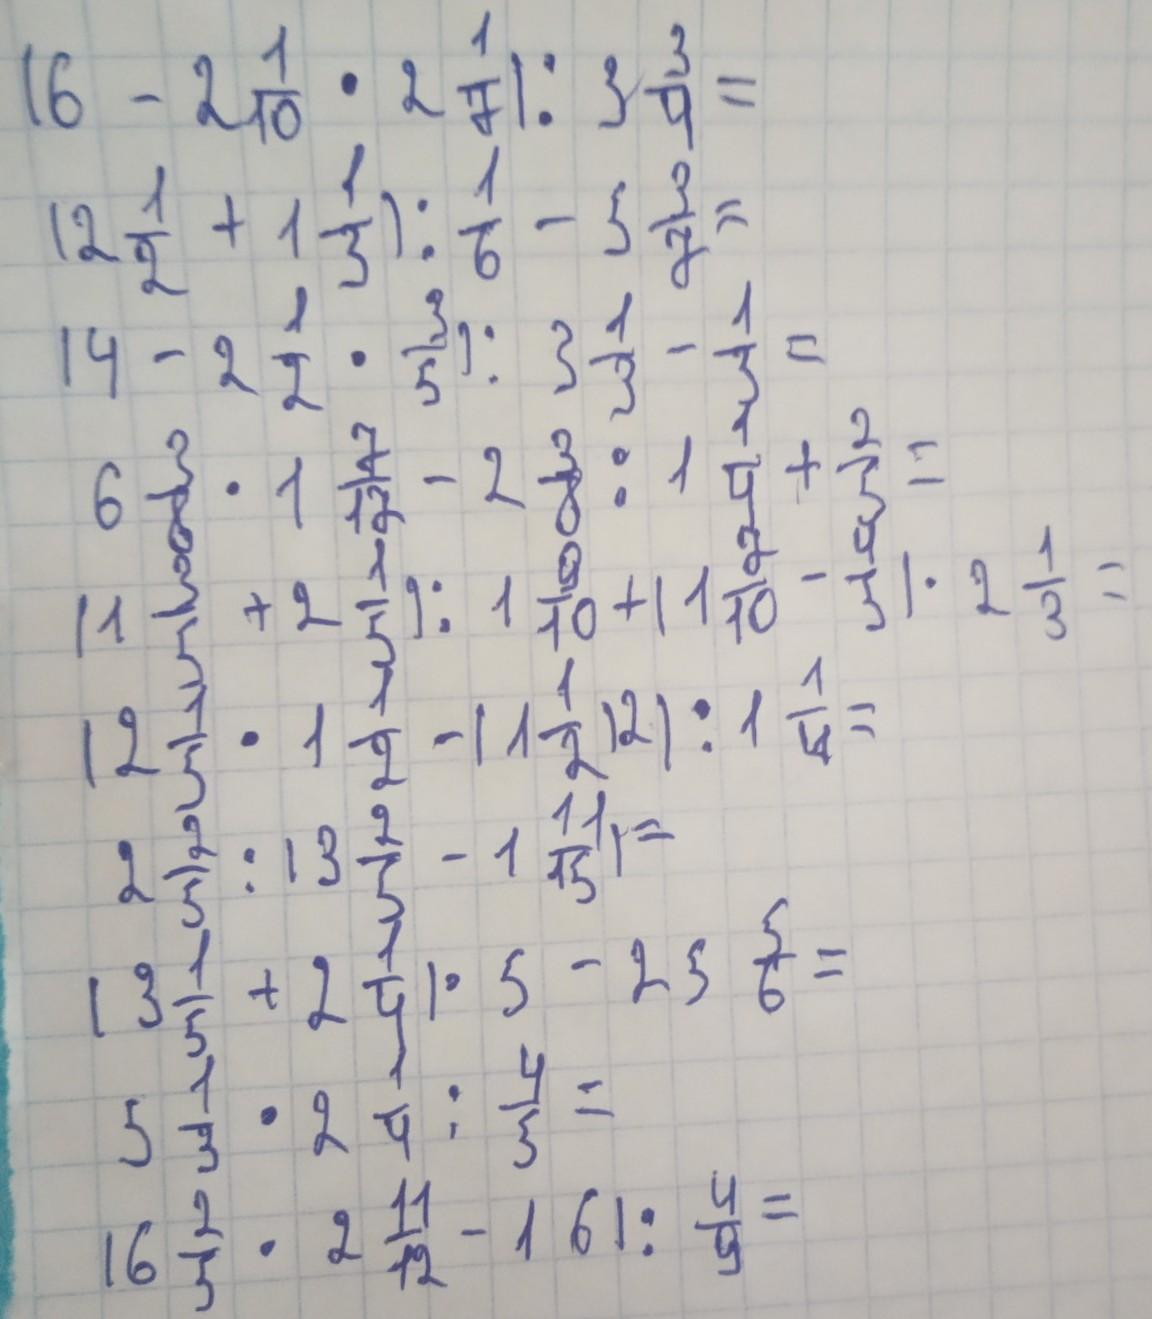 (6 - 2 1/10 · 2 1/7) : 3 3/4 =
(2 1/2 + 1 1/3) : 1/6 - 5 2/7 =
(4 - 2 1/2 · 3/5) : 3 1/3 - 1/3 =
6 3/8 · 1 7/17 - 2 3/8 : 1 1/4 + 2/5 =
(1 + 2 1/5) : 1 /10 + (1 7/10 - 4/5) · 2 1/3 =
(2 1/5 · 1 1/2 - (1 1/2)2) : 1 1/4 =
2 2/5 : (3 2/5 - 1 11/15) =
(3 1/5 + 2 1/4) · 5 - 25 5/6 =
5 1/3 · 2 1/4 : 4/5 =
(6 2/5 · 2 11/12 - 16) : 4/9 =